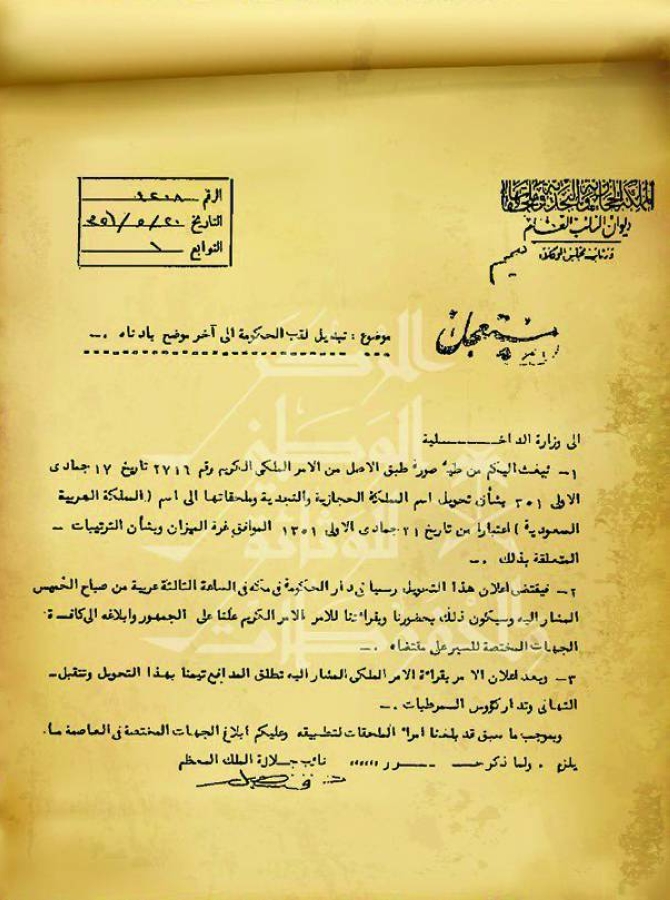 المملكة الحجازية والنجدية وملحقاتها
ديوان النائب العام
ورئاسة مجلس الوكلاء
تعميم
الرقم ٤٤٠٨
التاريخ ٢٠/٥/٣٥١
التوابع ١
مستعجل
موضوع : تبديل لقب الحكومة الى آخر موضح بادناه .ـ
الى وزارة الداخـــــــلية
١ـ نبعث اليكم من طيه صورة طبق الاصل من الامر الملكى الكريم رقم ٢٧١٦ تاريخ ١٧ جمادى
الاولى ٣٥١ بشأن تحويل اسم المملكة الحجازية والنجدية وملحقاتها الى اسم ( المملكة العربية
السعودية ) اعتبارا من تاريخ ٢١ جمادى الاولى ١٣٥١ الموافق غرة الميزان وبشأن الترتيبات ـ
المتعلقة بذلك .ـ
٢ـ فيقتضى اعلان هذا التحويل رسميا فى دار الحكومة فى مكه فى الساعة الثالثة عربية من صباح الخميس
المشار اليه وسيكون ذلك بحضورنا وبقرائتنا للامر الامر الكريم علنا على الجمهور وابلاغه الى كافـــة
الجهات المختصة للسير على مقتضاه .ـ
٣ـ وبعد اعلان الامر بقراءة الامر الملكى المشار اليه تطلق المدافع تيمنا بهذا التحويل وتتقبل ـ
التهانى وتدار كؤوس المرطبات .ـ
وبموجب ما سبق قد بلغنا امراء الملحقات لتطبيقه وعليكم ابلاغ الجهات المختصة فى العاصمة ما ـ
يلزم . ولما ذكر حـــ ــــرر ،،،،،، نائب جلالة الملك المعظم
فيصل
المركز
الوطني
للوثائق
والمحفوظات